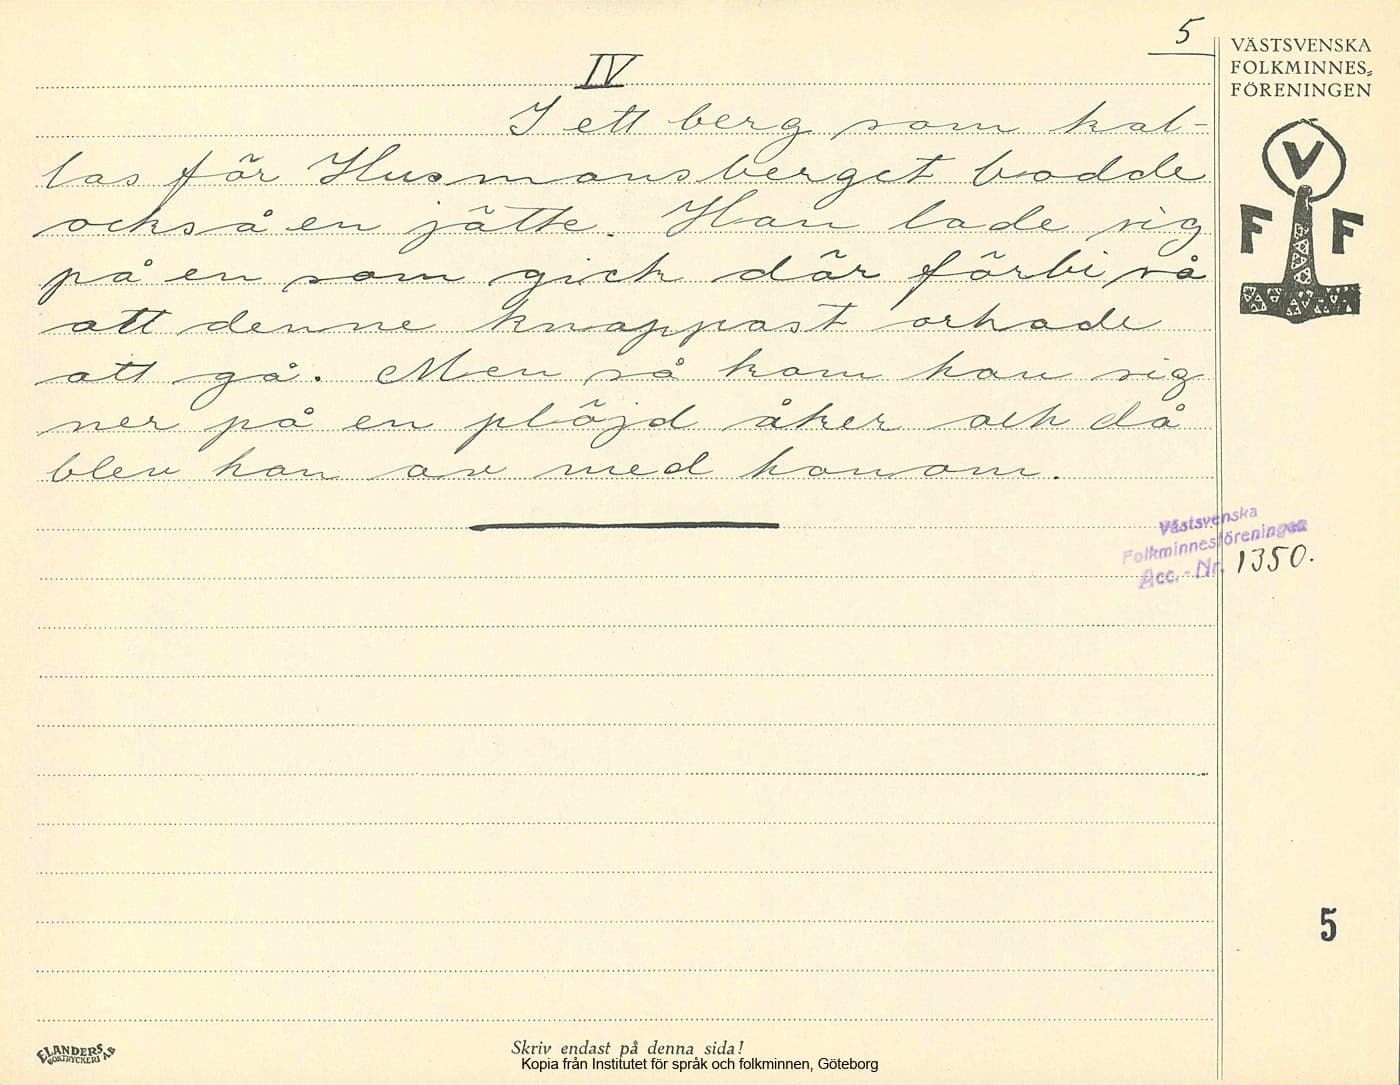 5
IV
I ett berg som kal-
las för Husmansberget bodde
också en jätte. Han lade sig
på en som gick där förbi så
att denne knappast orkade
att gå. Men så kom han sig
ner på en plöjd åker och då
blev han av med honom.
VÄSTSVENSKA
FOLKMINNES-
FÖRENINGEN
V
F F
Västsvenska
Folkminnesföreningen
Acc. - Nr. 1350.
5
ELANDERS
BOKTRYCKERI AB
Skriv endast på denna sida!
Kopia från Institutet för språk och folkminnen, Göteborg